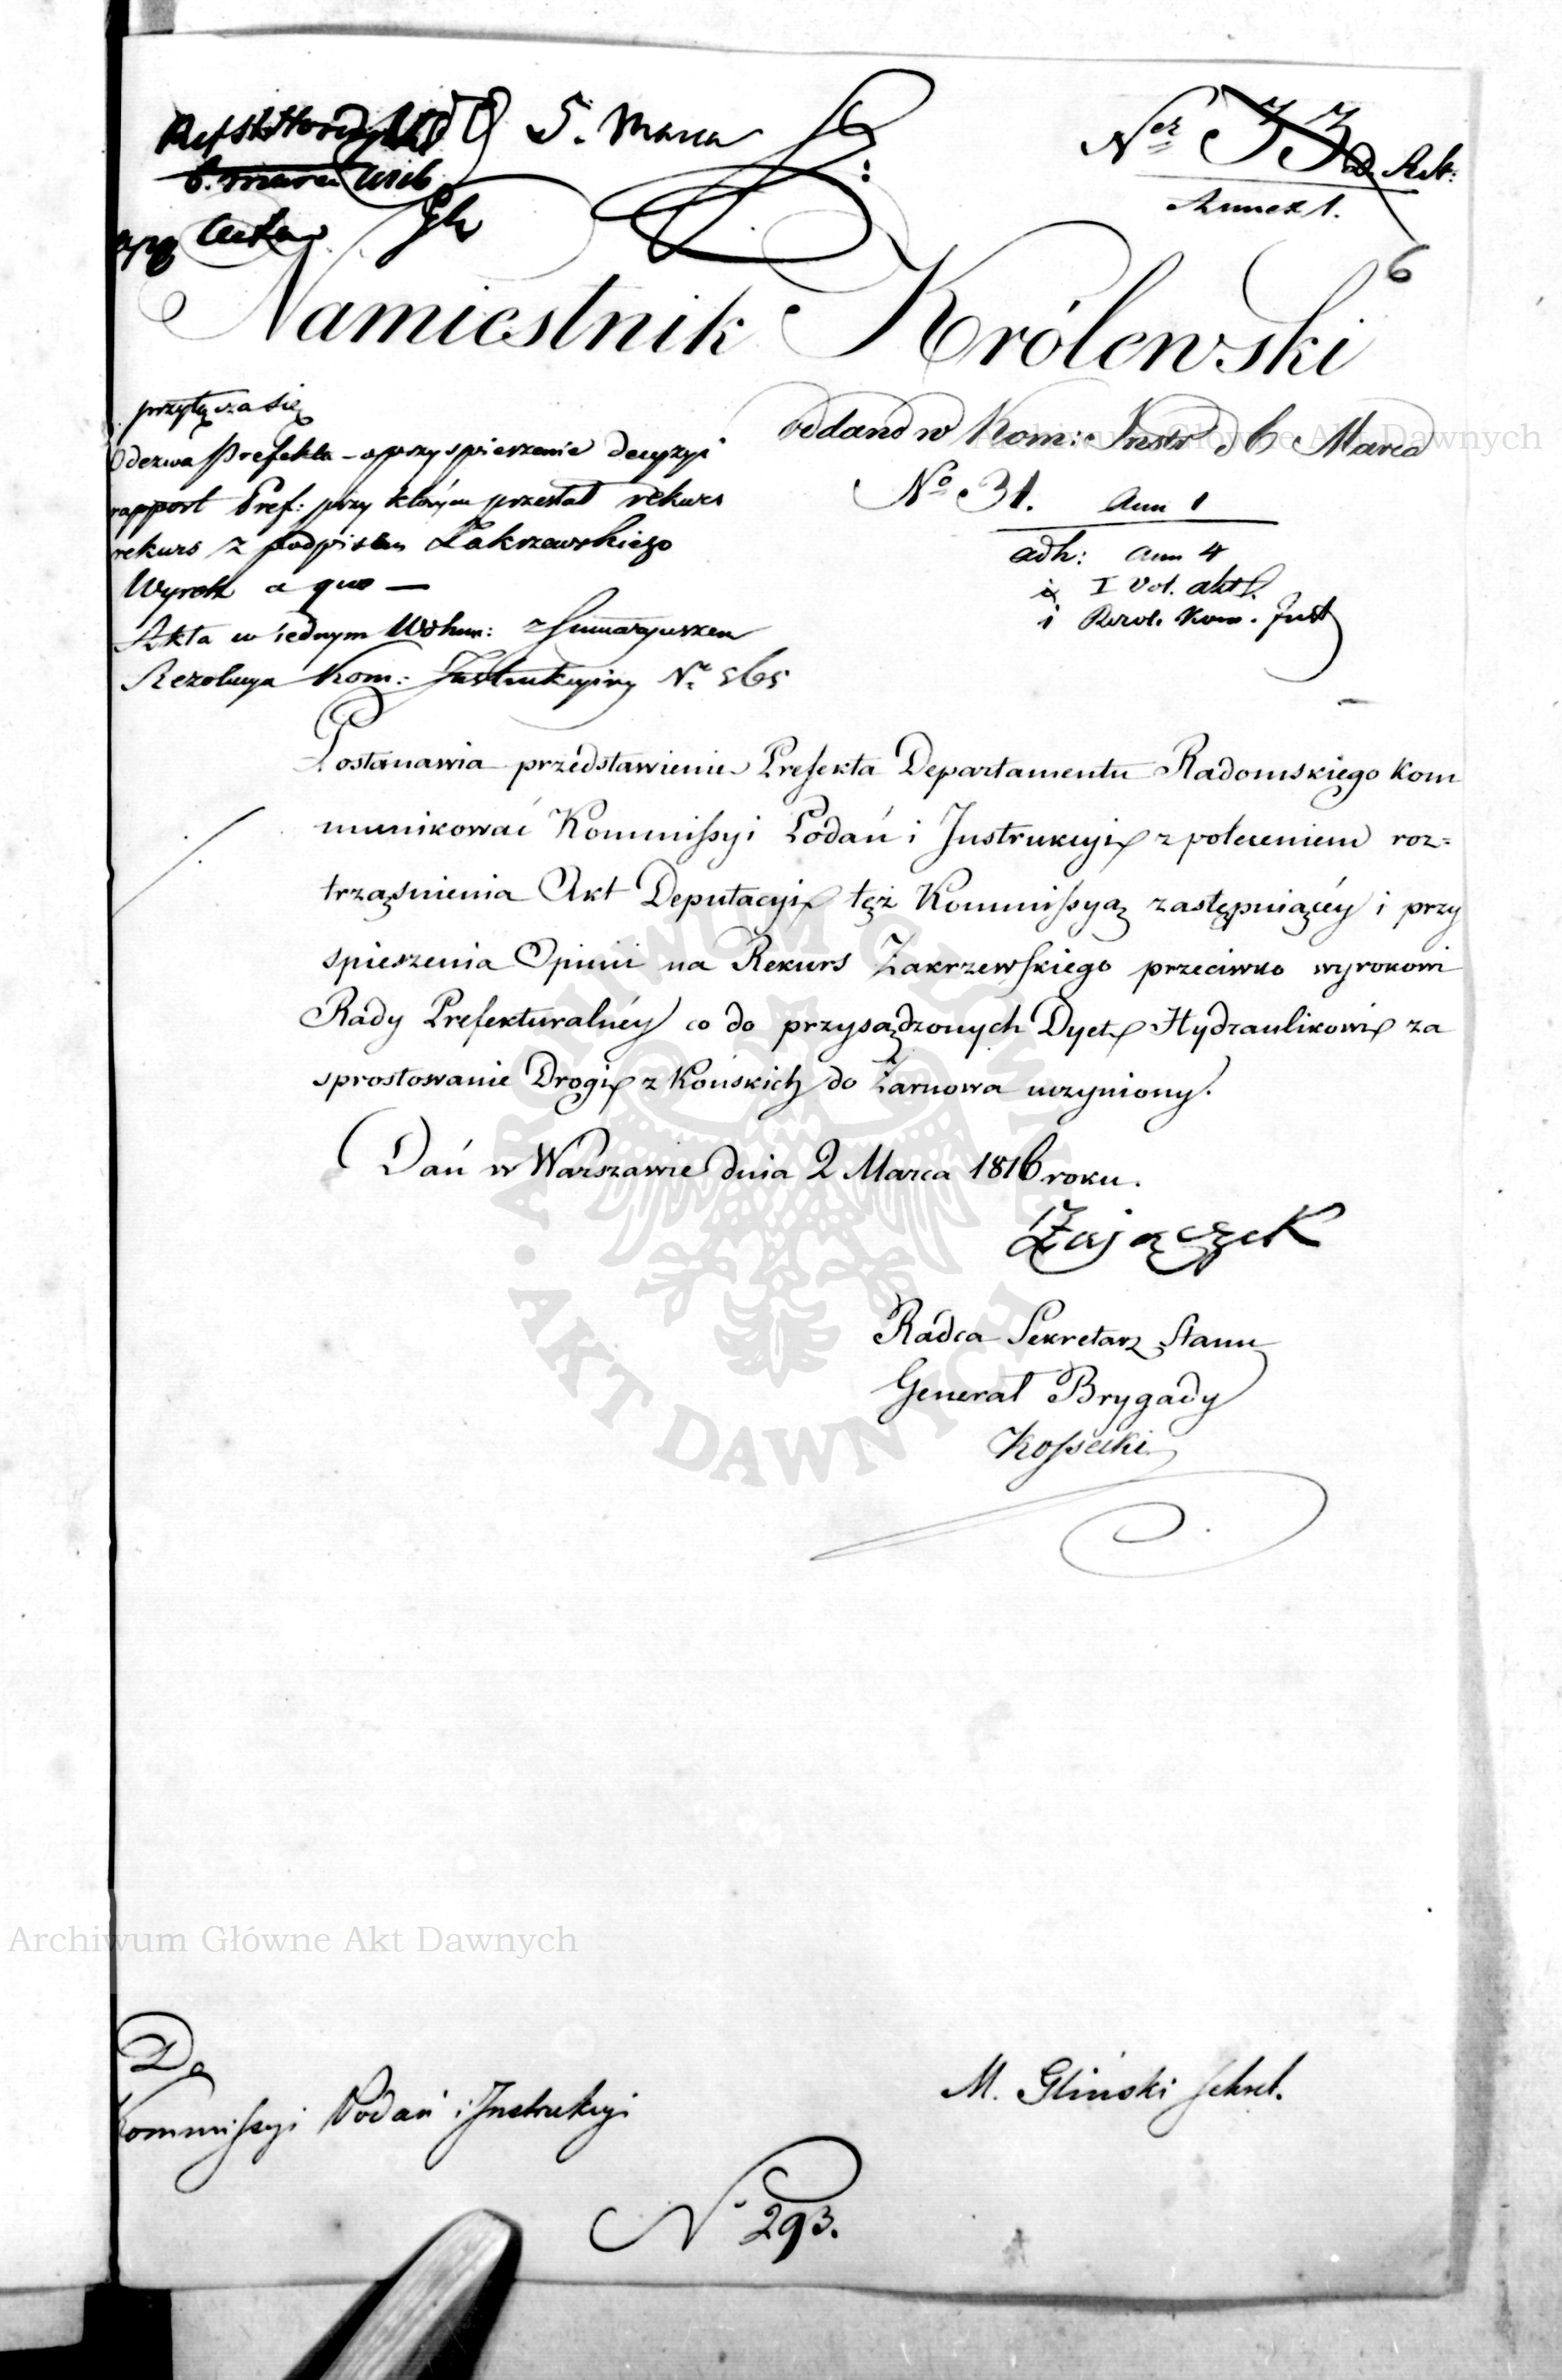 5. Marca
Ner 33 ad. Rek:
Annex 1.
6
Namiestnik Królewski
przyłącza się
Odezwa Prefekta – o przyspieszenie decyzyi
rapport Pref: przy którym przesłał rekurs
rekurs z podpisem Zakrzewskiego
Wyrok a quo —
Akta w iednym Wolum: z Sumaryuszem
Rezolucya Kom: Instrukcyiney Nr 565
oddano w Kom: Instr d 6 Marca
No 31. Ann 1
adh: Ann 4
i I Vol. akt
i Rezol. Kom. Inst
Postanawia przedstawienie Prefekta Departamentu Radomskiego kom
munikować Kommissyi Podań i Instrukcyi z poleceniem roz=
trząśnienia Akt Deputacyi tęż Kommissyą zastępuiącéy i przy
spieszenia Opinii na Rekurs Zakrzewskiego przeciwko wyrokowi
Rady Prefekturalnéy co do przysądzonych Dyet Hydraulikowi za
sprostowanie Drogi z Końskich do Żarnowa uczyniony.
Dań w Warszawie dnia 2 Marca 1816 roku.
Zajączek
Radca Sekretarz Stanu
Generał Brygady
Kossecki
Do
Kommissyi Podań i Instrukcyi
M. Gliński sekret.
No 293.
Archiwum Główne Akt Dawnych
Archiwum Główne Akt Dawnych
ARCHIWUM GŁÓWNE • AKT DAWNYCH •